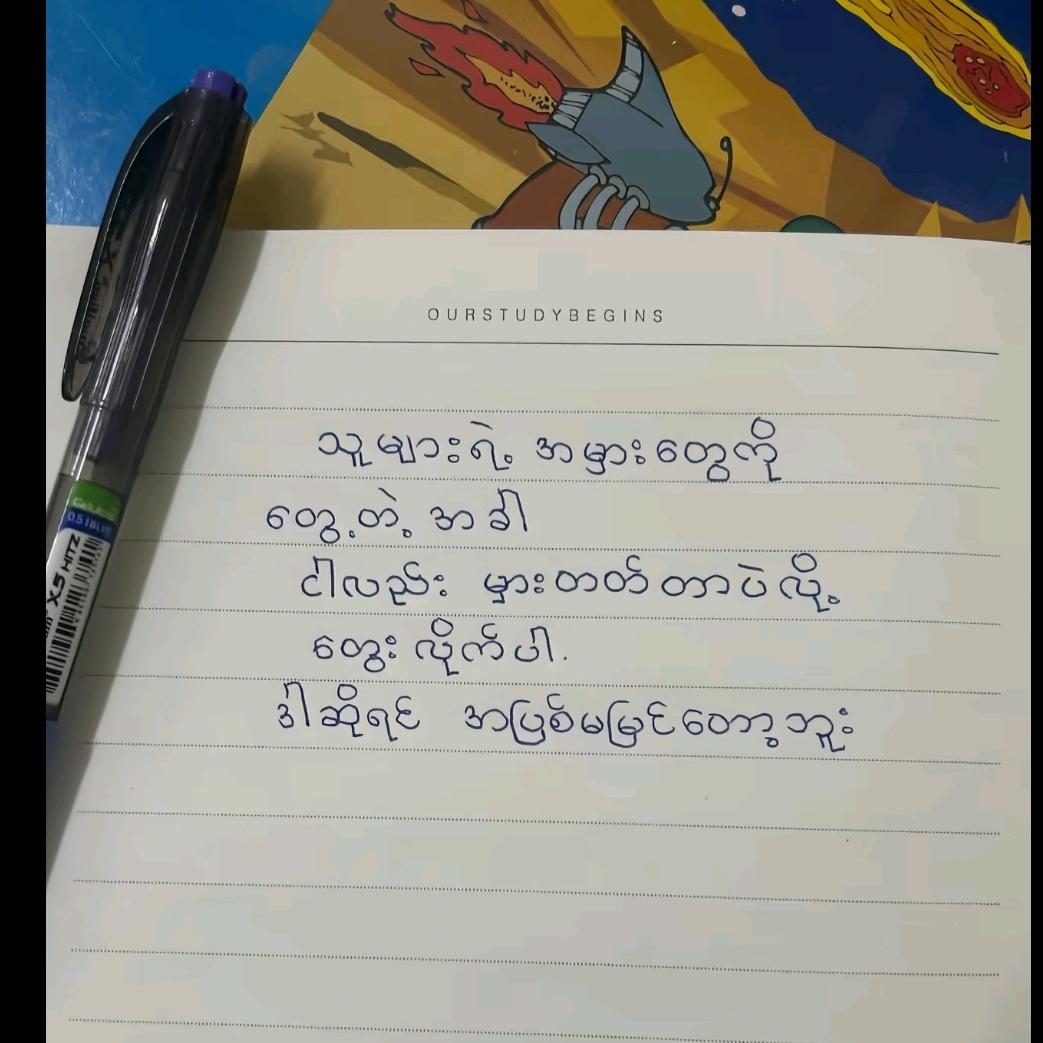 OURSTUDYBEGINS
သူများရဲ့ အမှားတွေကို
တွေ့တဲ့ အခါ
ငါလည်း မှားတတ်တာပဲလို့
တွေးလိုက်ပါ.
ဒါဆိုရင် အပြစ်မမြင်တော့ဘူး
X5 HITZ